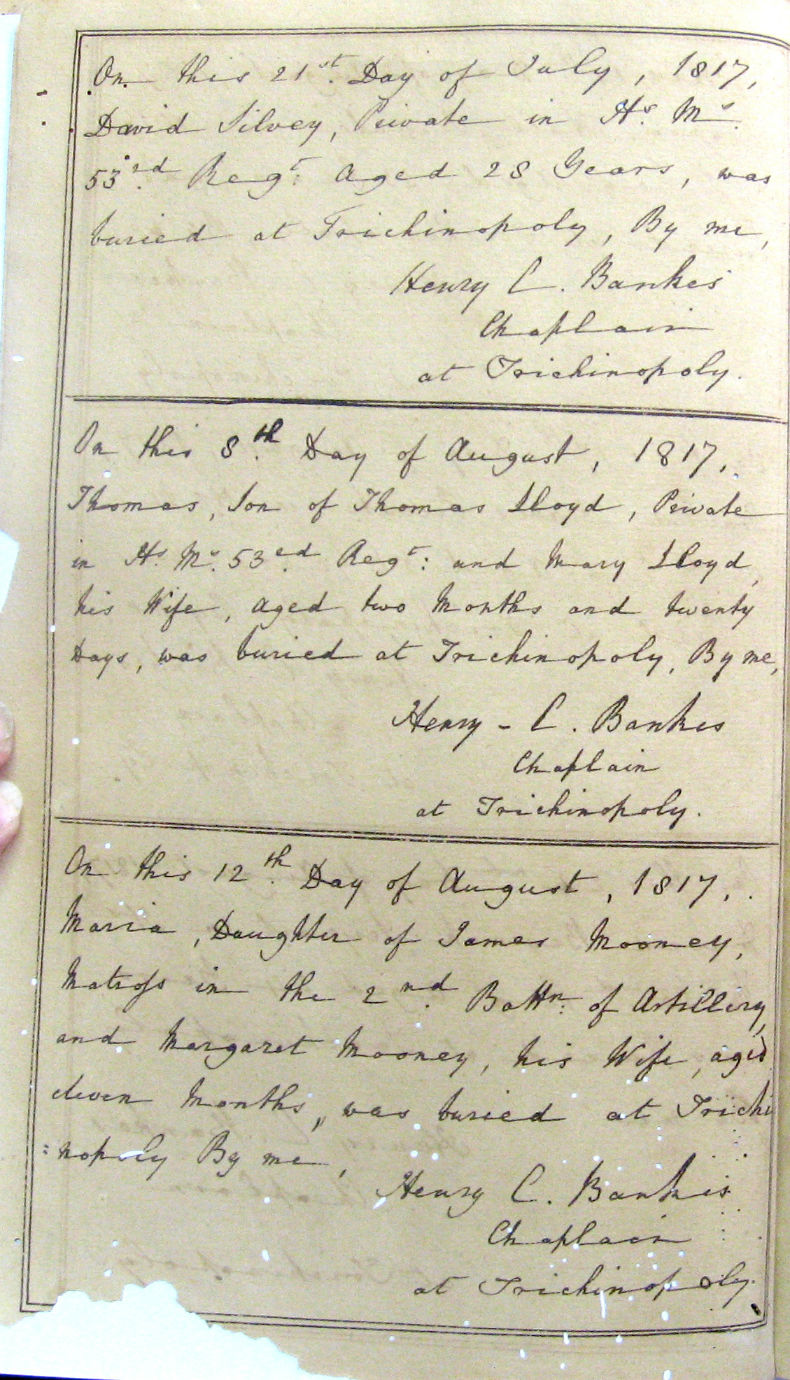 On this 21st. Day of July, 1817,
David Silvey, Private in Hs. Ms.
53rd. Regt: Aged 28 Years, was
buried at Trichinopoly, By me,
Henry C. Bankes
Chaplain
at Trichinopoly.
On this 8th. Day of August, 1817,
Thomas, Son of Thomas Lloyd, Private
in Hs. Ms. 53rd. Regt: and Mary Lloyd,
his Wife, aged two Months and twenty
Days, was buried at Trichinopoly, By me,
Henry - C. Bankes
Chaplain
at Trichinopoly.
On this 12th. Day of August, 1817,
Maria, Daughter of James Mooney,
Matross in the 2nd. Battn: of Artillery,
and Margaret Mooney, his Wife, aged
eleven Months, was buried at Trichi
=nopoly By me,
Henry C. Bankes
Chaplain
at Trichinopoly.